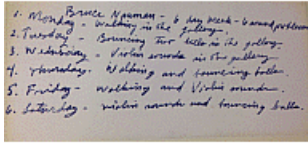 Bruce Nauman - 6 day week - 6 sound problems
1. Monday - Walking in the gallery.
2. Tuesday - Bouncing two balls in the gallery
3. Wednesday - Violin sounds in the gallery
4. Thursday. Walking and bouncing balls.
5. Friday - walking and Violin sounds.
6. Saturday - violin sounds and bouncing balls.